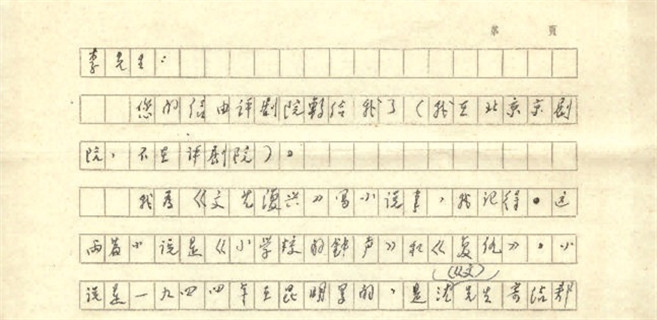 第 頁
李先生：
您的信由评剧院轉给我了（我在北京京剧
院，不在评剧院）。
我为《文艺復兴》写小说事，我记得。这
两篇小说是《小学校的鈡声》和《复仇》。小
（从文）
说是一九四四年在昆明写的，是沈先生寄给郑